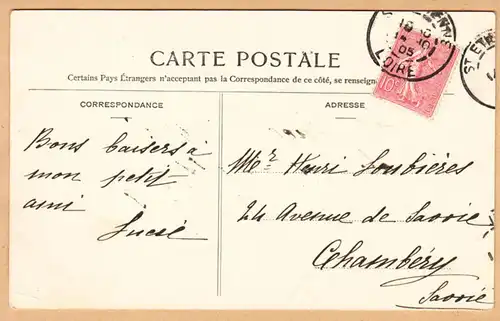 CARTE POSTALE
Certains Pays Étrangers n'acceptant pas la Correspondance de ce côté, se renseign
CORRESPONDANCE
ADRESSE
Bons baisers à
mon petit
ami
Lucie
Mr. Henri Loubières
24 Avenue de Savoie
Chambéry
Savoie
10c
LOIRE
05
ST. ETIE